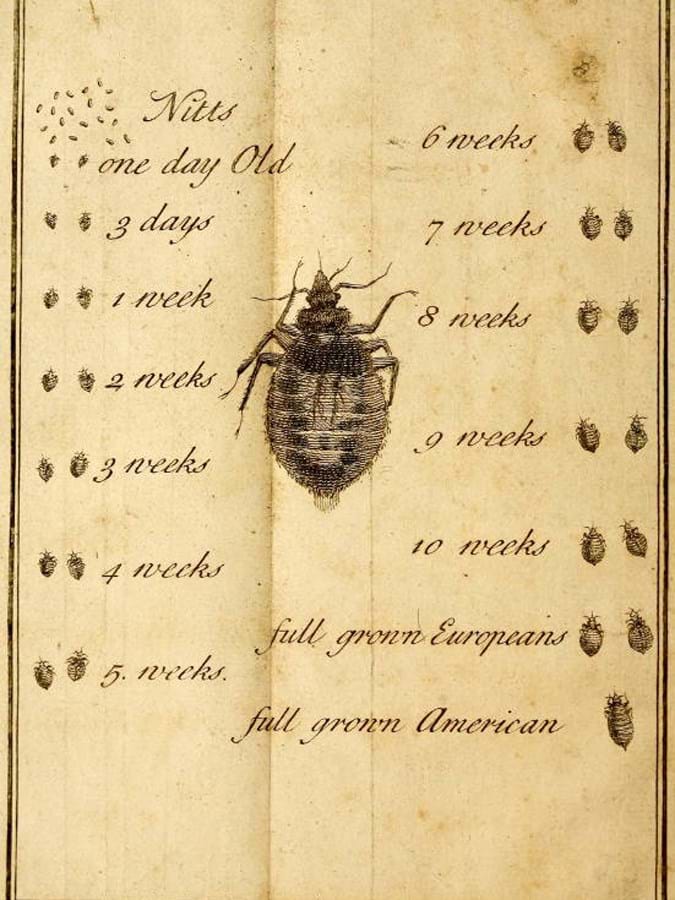 Nitts
one day Old
3 days
1 week
2 weeks
3 weeks
4 weeks
5. weeks.
6 weeks
7 weeks
8 weeks
9 weeks
10 weeks
full grown Europeans
full grown American